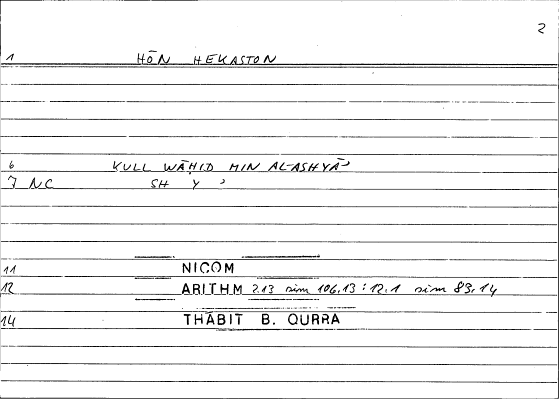 2
1 HŌN HEKASTON
6 KULL WĀḤID MIN AL-ASHYĀʾ
7 NC SH Y ʾ
11 NICOM
12 ARITHM 2.13 sim 106.13 : 12.1 sim 83.14
14 THĀBIT B. QURRA